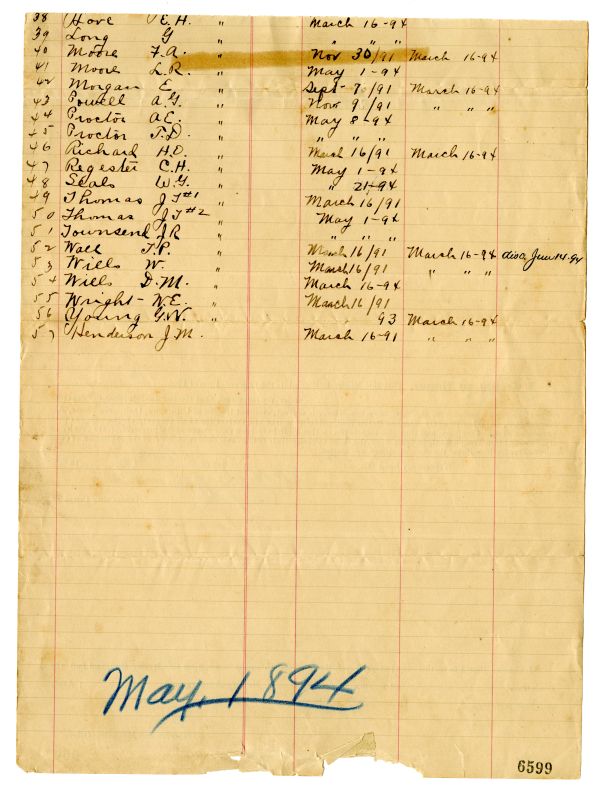 38 Hove E.H. " March 16-94
39 Long G " " " "
40 Moore F.A. " Nov 30/91 March 16-94
41 Moore L.R. " May 1-94
42 Morgan E. " Sept- 9/91 March 16-94
43 Powell A.G. " Nov 9/91 " " "
44 Proctor A.E. " May 8-94
45 Proctor T.D. " " " "
46 Richard H.O. " March 16/91 March 16-94
47 Register C.H. " May 1-94
48 Seals W.G. " " 21-94
49 Thomas J T #1 " March 16/91
50 Thomas J T #2 " May 1-94
51 Townsend J R " " " "
52 Wall T.P. " March 16/91 March 16-94 disc June 14-94
53 Wills W. " March 16/91 " " "
54 Wills D.M. " March 16-94
55 Wright- W.E. " March 16/91
56 Young G.W. " 93 March 16-94
57 Henderson J.M. " March 16-91 " " "
May, 1894
6599